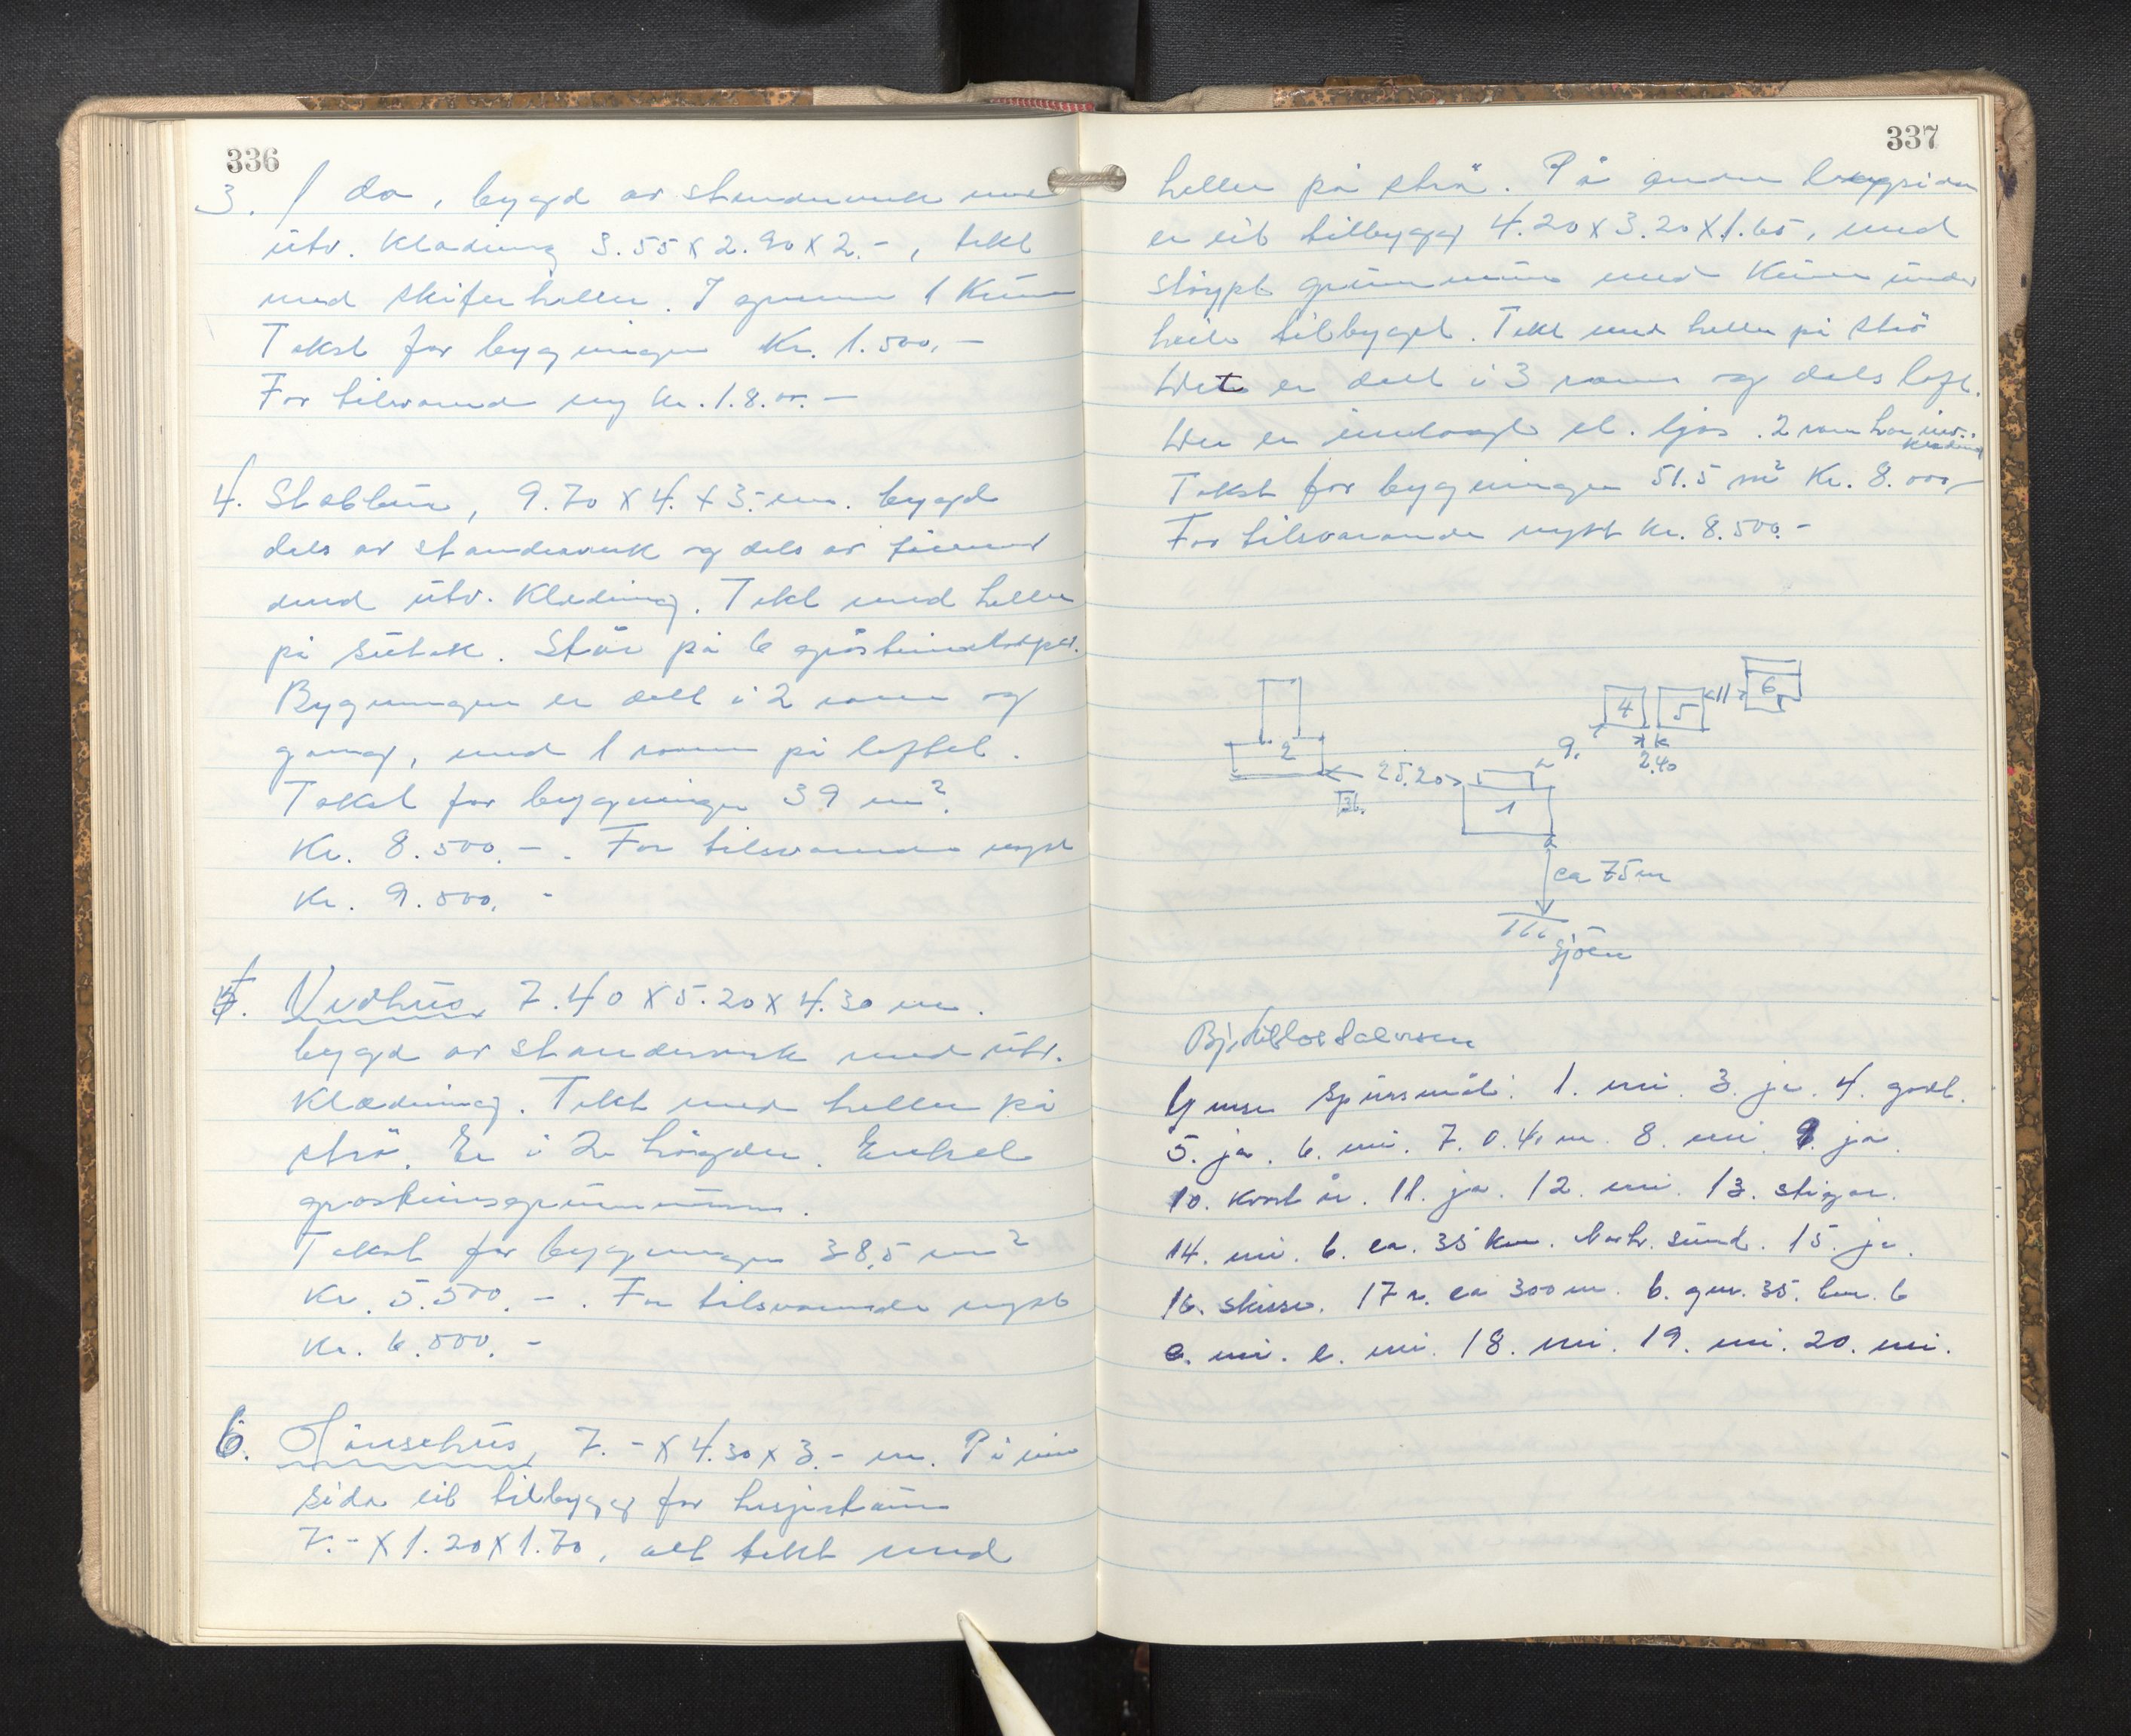 336
3. 1 do, bygd av standerverk med
utv. Klædning 3.55 x 2.90 x 2.-, tekt
med skiferheller. I grunn 1 Kum
Takst for bygningen Kr. 1.500.-
For tilsvarand ny kr. 1.8.oo.-
4. Stabbur, 9.70 x 4. x 3.- m. bygd
dels av standerverk og dels av
med utv. Klædning. Tekt med heller
på sutak. Står på 6 gråsteinstolpar.
Bygningen er delt i 2 rom og
gang, med 1 rom på loftet.
Takst for bygningen 39 m².
Kr. 8.500.-. For tilsvarande nytt
Kr. 9.000.-
5. Vedhus, 7.40 x 5.20 x 4.30 m.
bygd av standerverk med utv.
Klædning. Tekt med heller på
strø. Er i 2 høgder. Enkel
gråsteinsgrunnmur.
Takst for bygningen 38,5 m²
Kr. 5.500.-. For tilsvarande nytt
Kr. 6.000.-
6. Hønsehus, 7.- x 4.30 x 3.- m. På ein
side eit tilbygg for hesjestaur
7.- x 1.20 x 1.70, alt tekt med
337
heller på strø. På andre langsida
er eit tilbygg 4.20 x 3.20 x 1.65, med
støypt grunnmur med Kum under
heile tilbygget. Tekt med heller på strø
Det er delt i 3 rom og dels loft.
Der er innlagt el. ljos. 2 rom har inv.
Klædning
Takst for bygningen 51.5 m² Kr. 8.000,-
For tilsvarande nytt kr. 8.500.-
2
25.20
1
9.
4
5
2.40
11
6
ca 75 m
Sjøen
Ymse Spursmål: 1. nei. 3. ja. 4. godt.
5. ja. 6. nei. 7. 0.4, m. 8. nei. 9. ja.
10. Kvart år. 11. ja. 12. nei. 13. stigar.
14. nei. b. ca. 35 km. sund. 15. ja.
16. skisse. 17 a. ca 300 m. b. 35. km.
c. nei. e. nei. 18. nei. 19. nei. 20. nei.